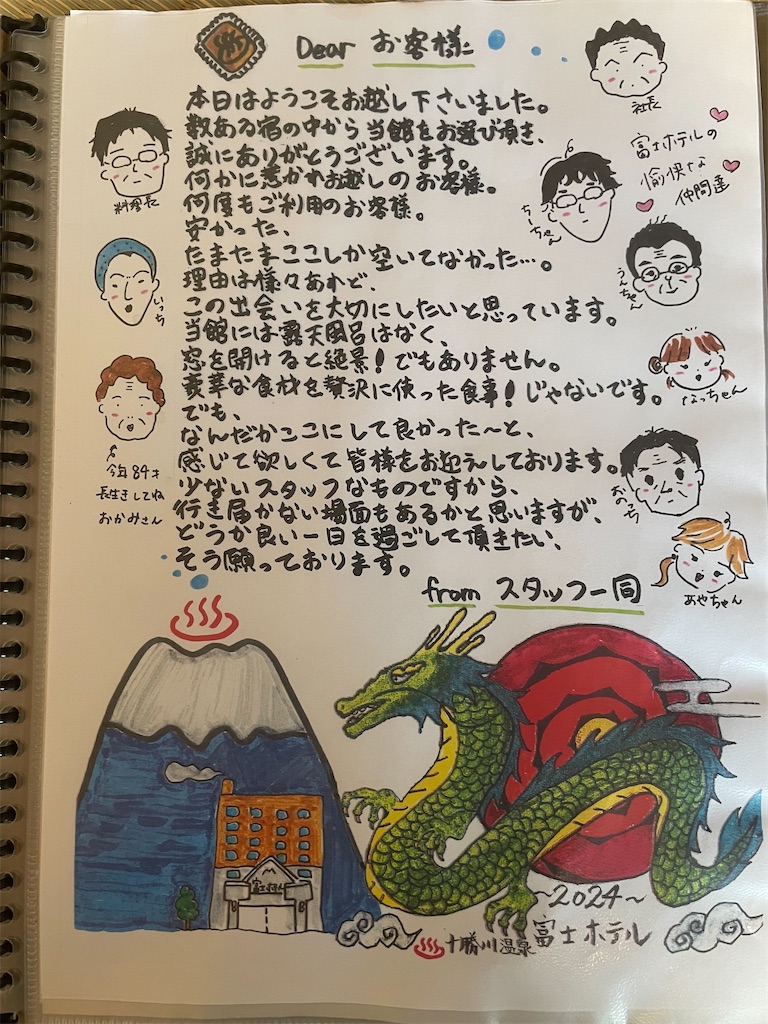 Dear お客様に
本日はようこそお越し下さいました。
数ある宿の中から当館をお選び頂き、
誠にありがとうございます。
何かに惹かれお越しのお客様。
何度もご利用のお客様。
安かった、
たまたまここしか空いてなかった…。
理由は様々あれど、
この出会いを大切にしたいと思っています。
当館には露天風呂はなく、
窓を開けると絶景!でもありません。
豪華な食材を贅沢に使った食事!じゃないです。
でも、
なんだかここにして良かった〜と、
感じて欲しくて皆様をお迎えしております。
少ないスタッフなものですから、
行き届かない場面もあるかと思いますが、
どうか良い一日を過ごして頂きたい、
そう願っております。
from スタッフ一同
社長
富士ホテルの
愉快な
仲間達
料理長
ちーちゃん
うんちゃん
いっち
なっちゃん
今年84才
長生きしてね
おかみさん
おのっち
あやちゃん
富士ホテル
〜2024〜
十勝川温泉 富士ホテル